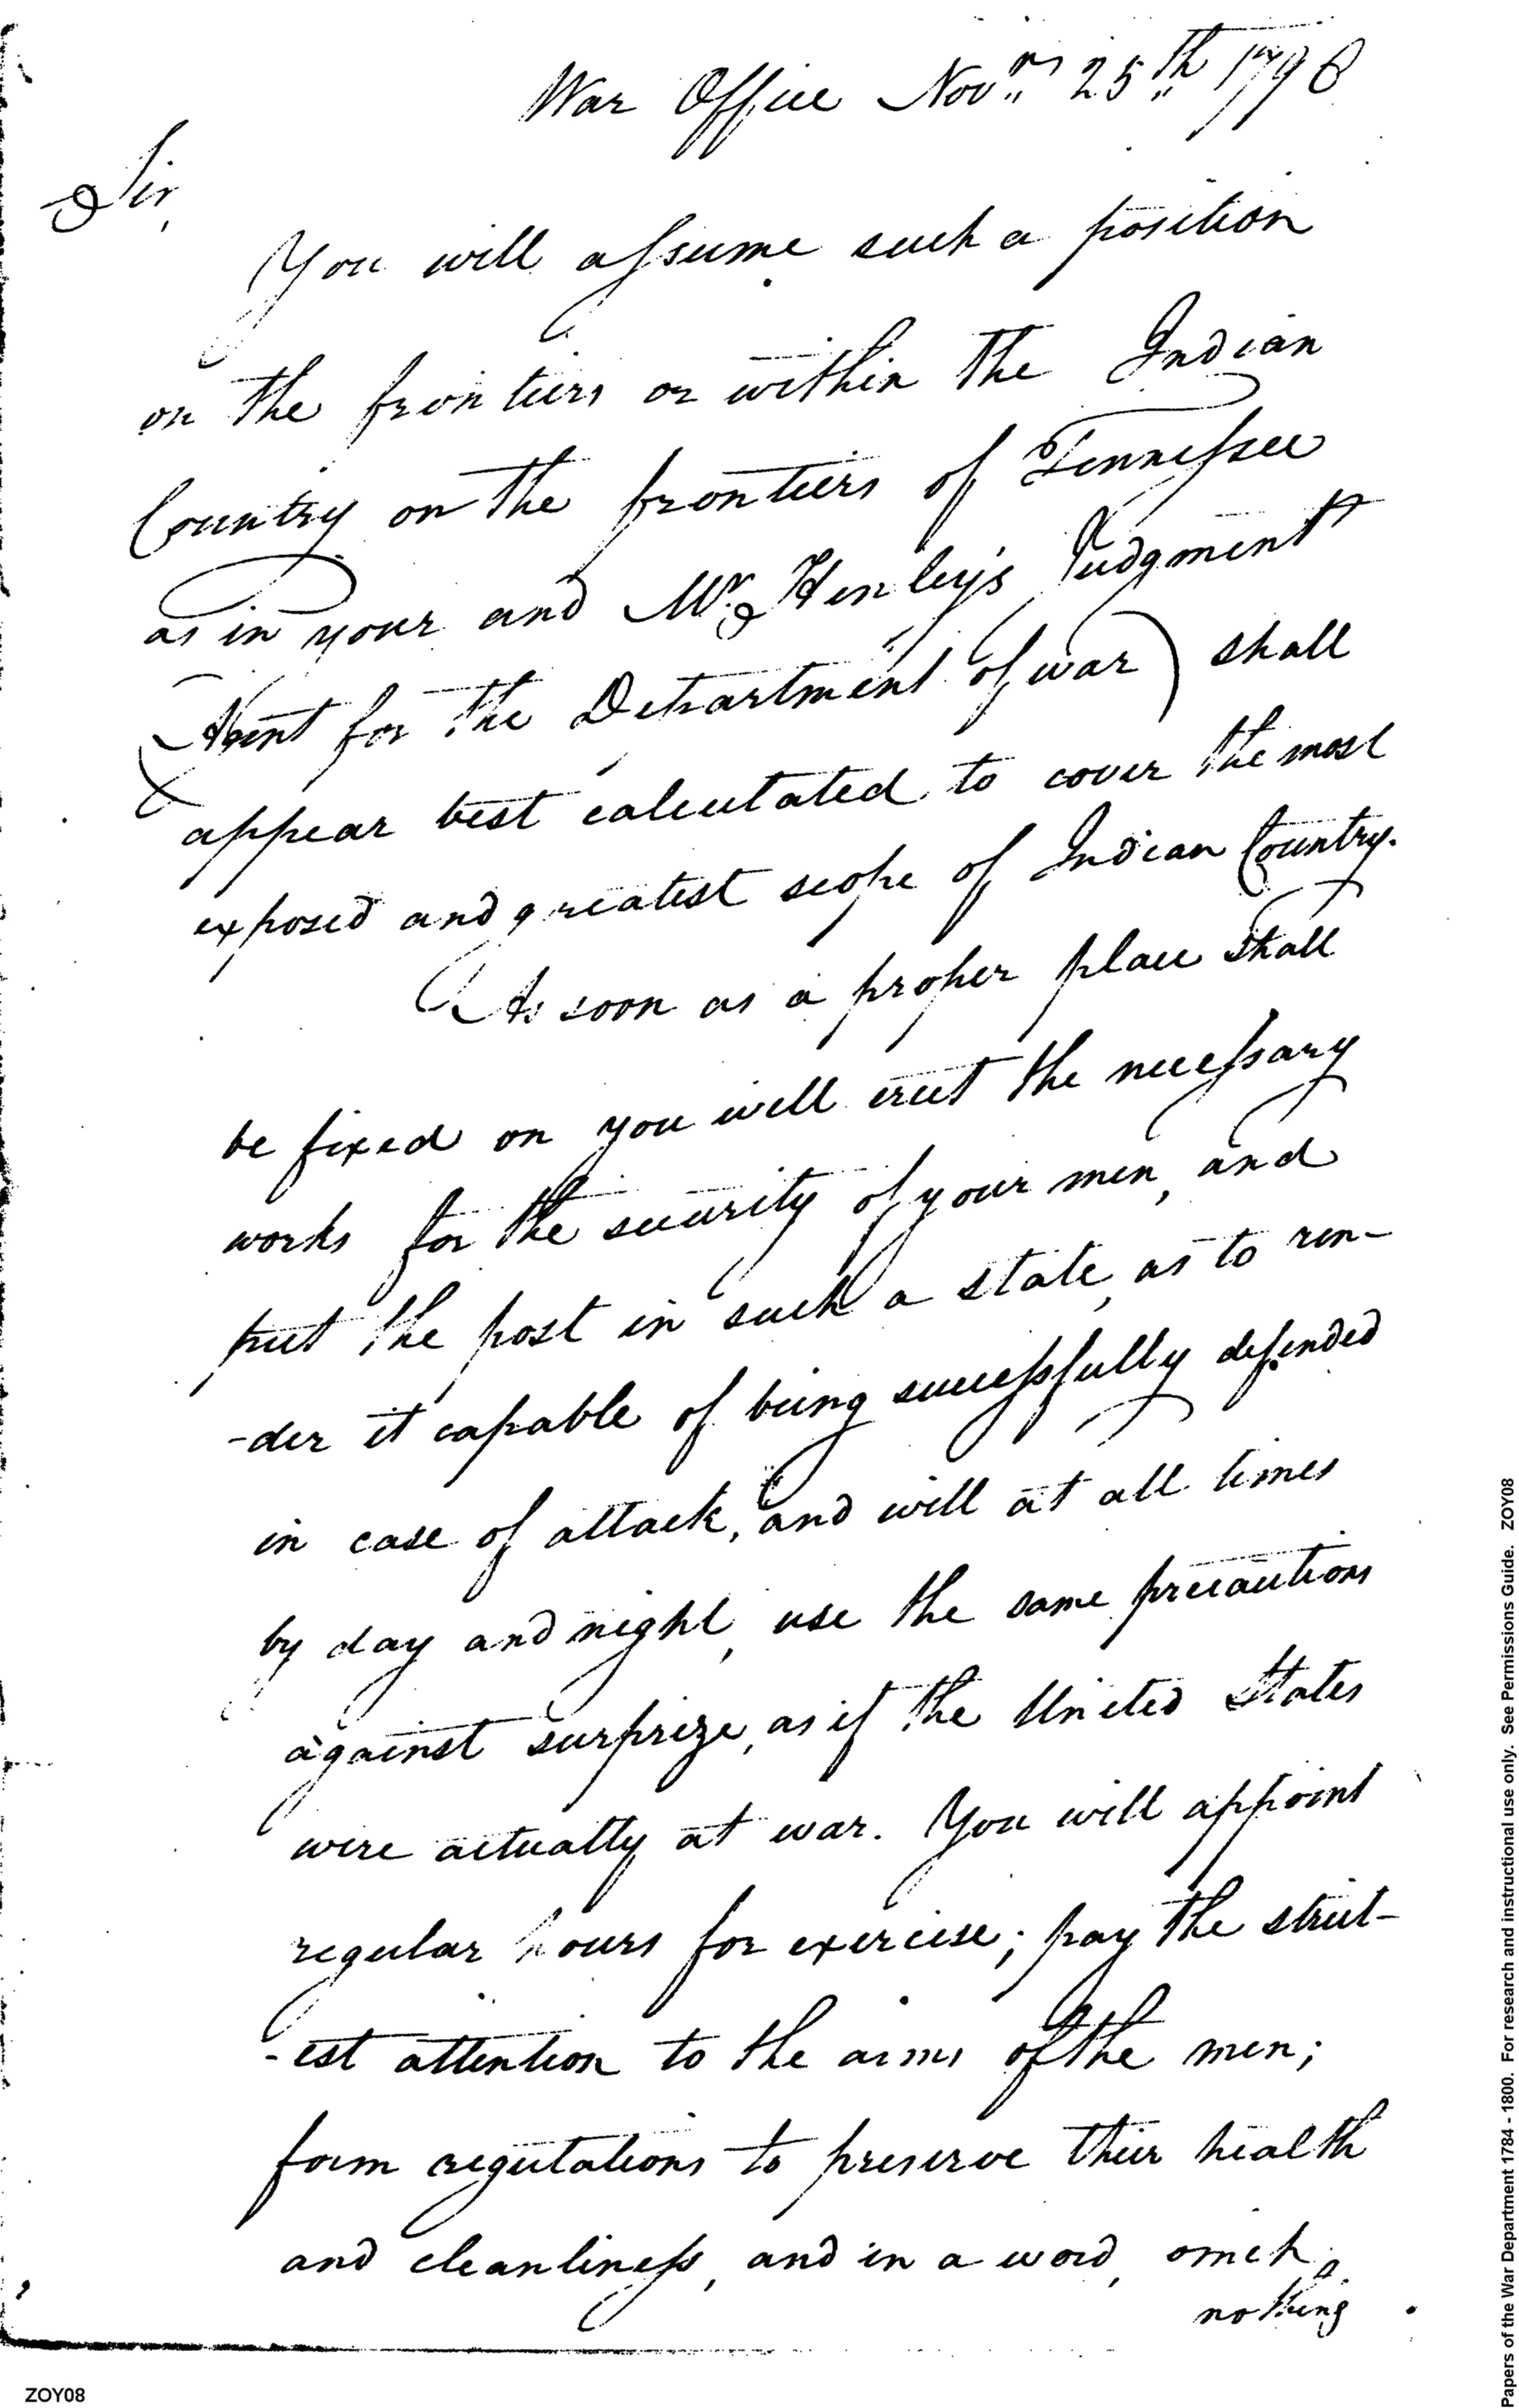 War Office Novr 25th 1796
Sir,
You will assume such a position
on the frontiers or within the Indian
Country on the frontiers of Tennessee
as in your and Mr Henley's Judgment
(Agent for the Department of war) shall
appear best calculated to cover the most
exposed and greatest scope of Indian Country.
As soon as a proper place shall
be fixed on you will erect the necessary
works for the security of your men, and
put the post in such a state, as to ren-
-der it capable of being successfully defended
in case of attack, and will at all times
by day and night, use the same precautions
against surprize, as if the United States
were actually at war. You will appoint
regular hours for exercise; pay the strict-
-est attention to the arms of the men;
form regulations to preserve their health
and cleanliness, and in a word, omit
nothing
ZOY08
Papers of the War Department 1784 - 1800. For research and instructional use only. See Permissions Guide. ZOY08